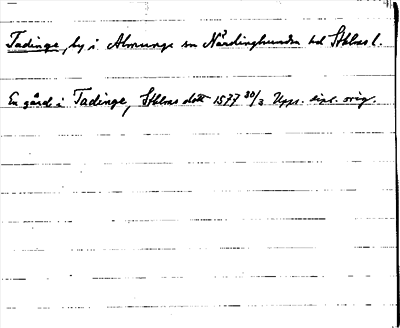 Tadinge, by i Almunge sn Närdinghundra hd Sthlms l.
En gård i Tadinge, Sthlms slott 1577 30/3 Upps. dipl. orig.